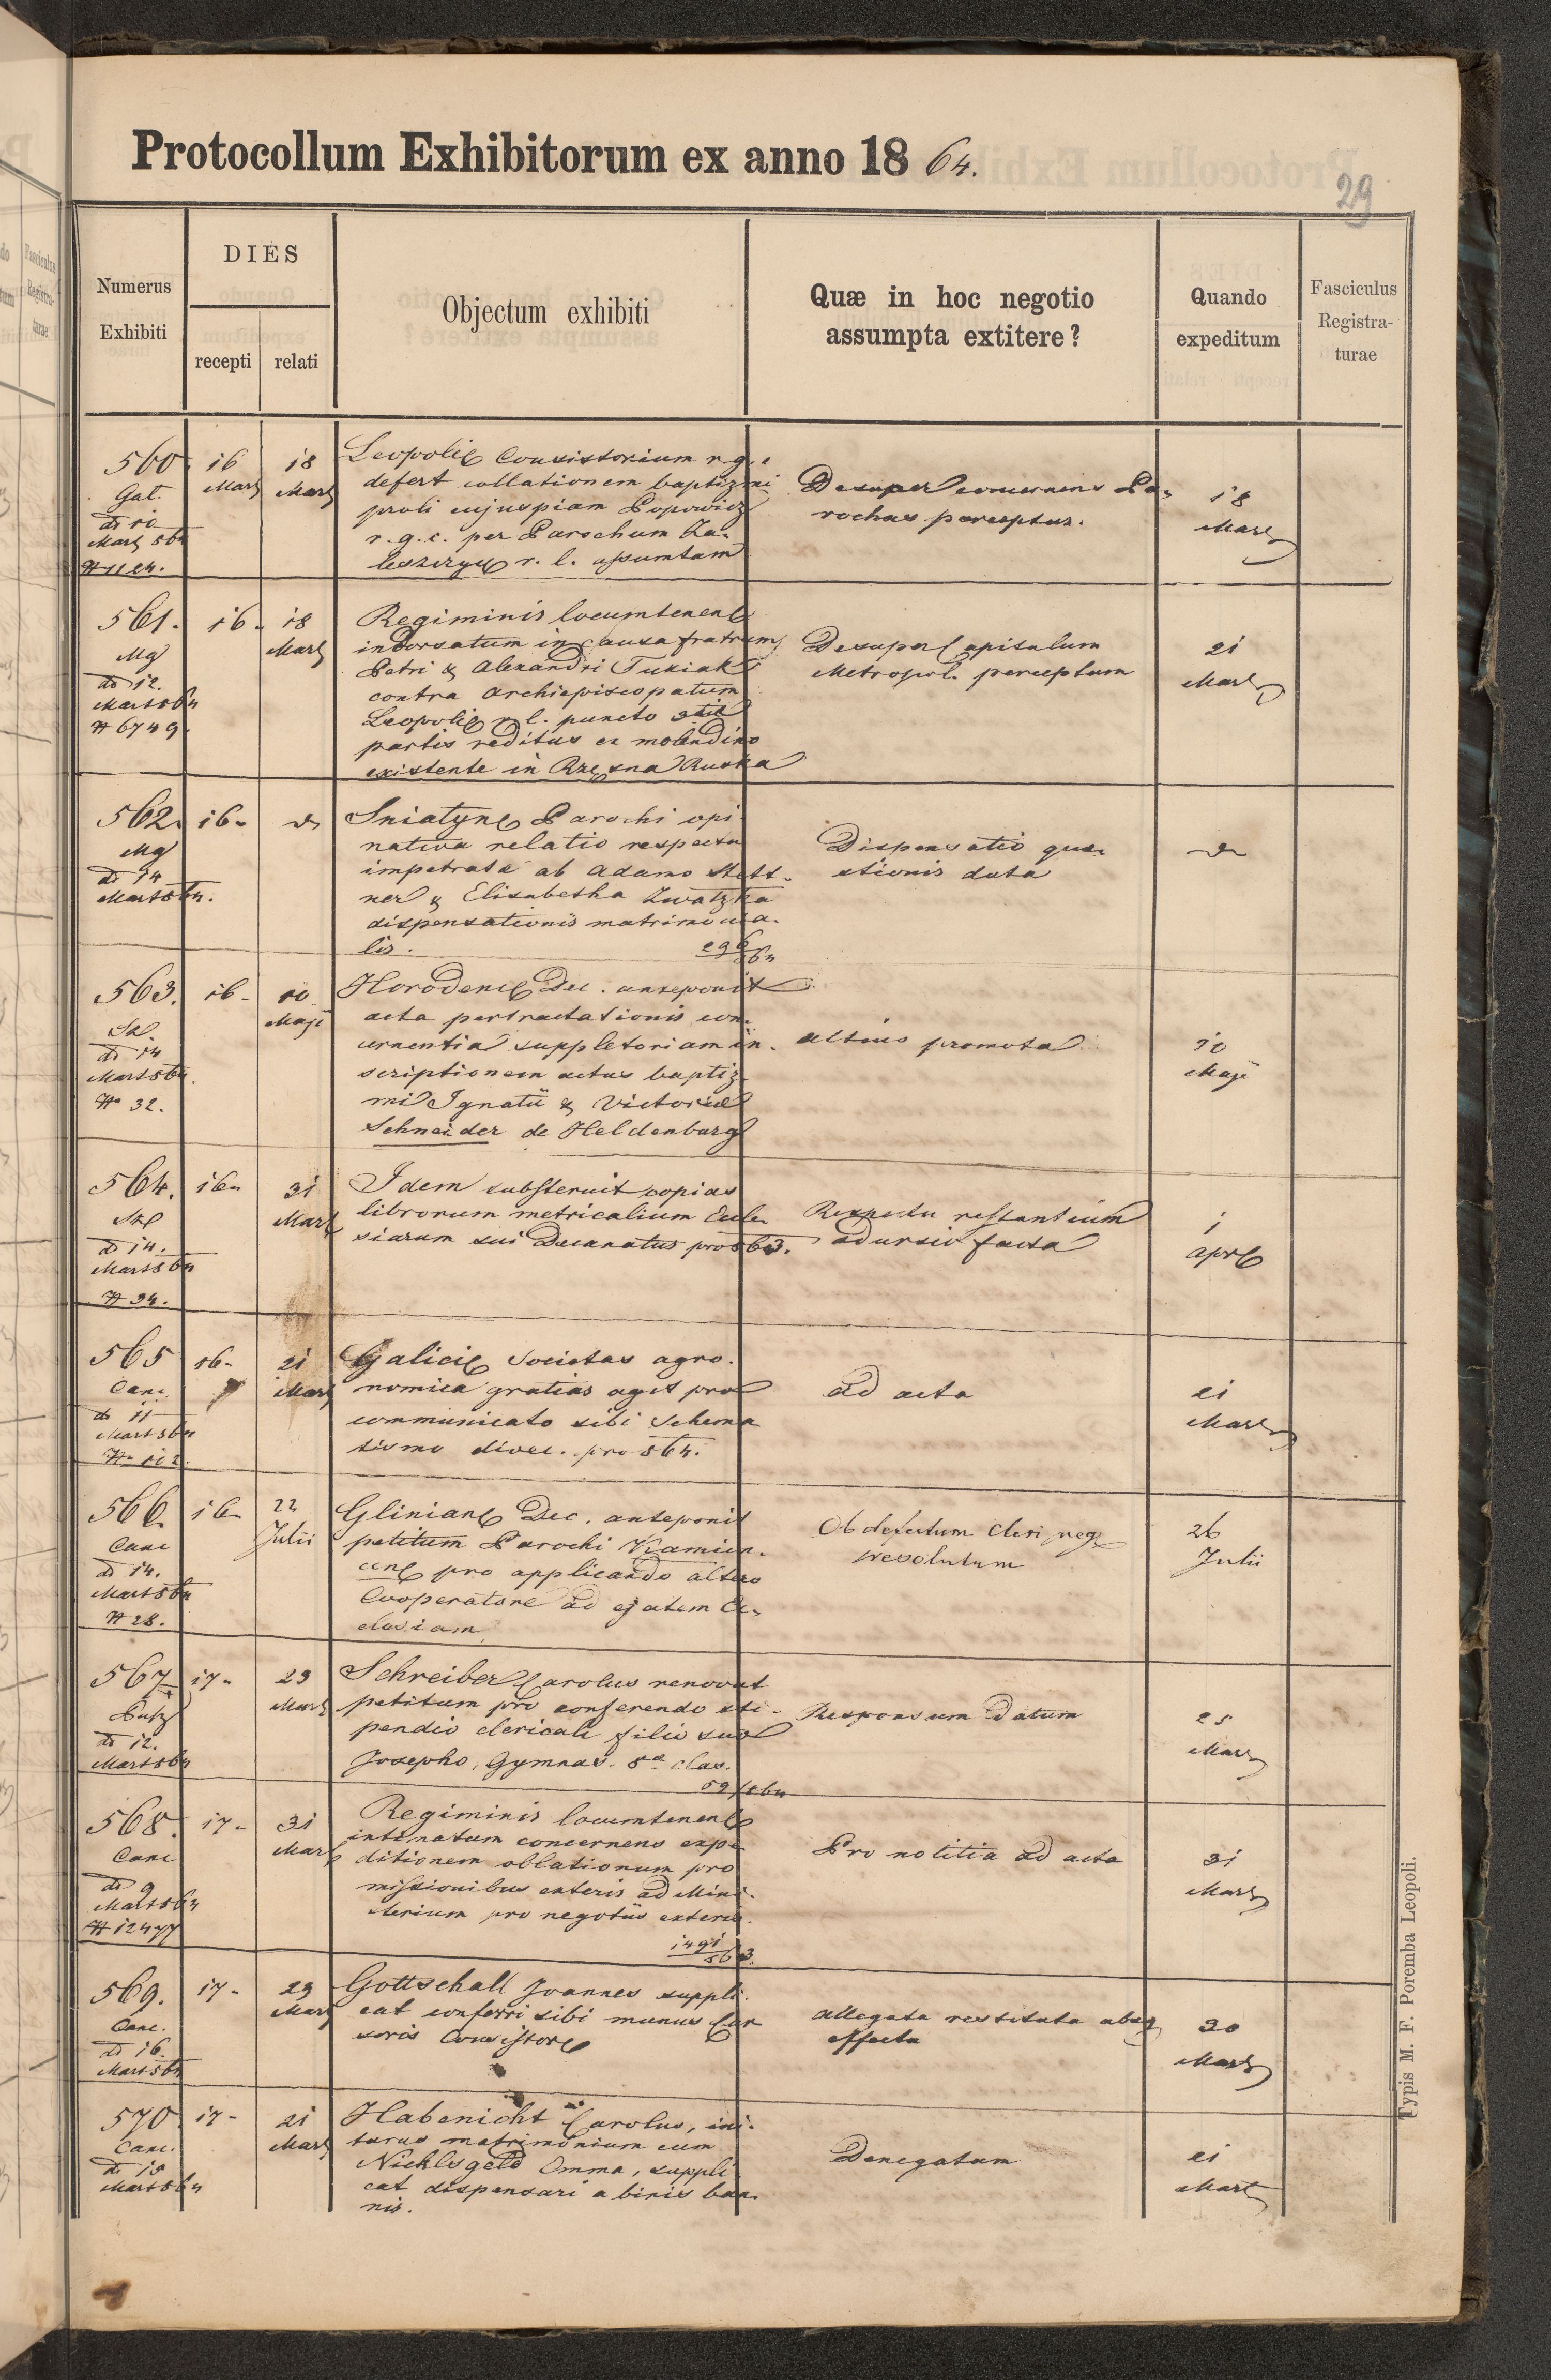 Protocollum Exhibitorum ex anno 1864.
29
Numerus Exhibiti
DIES
recepti
relati
Objectum exhibiti
Quæ in hoc negotio
assumpta extitere?
Quando
expeditum
Fasciculus
Registra-
turae
560
Gal.
do 10
Mart 864
N 1124.
16
Mart
18
Mart
Leopoli Consistorium r.g.c
defert collationem baptizmi
proli cujuspiam Popowicz
r.g.c. per Parochum Za-
leszczy r. l. assumtam
Desuper concernens Pa-
rochus perceptus.
18
Mart
561.
Mg
do 12.
Mart 864
N 6749.
16-
18
Mart
Regiminis locumtenen
indorsatum in causa fratrum
Petri & Alexandri Tukiak
contra Archiepiscopatum
Leopoli r. l. puncto
partis reditus ex molendino
existente in Rzęsna Ruska
Desuper Capitulum
Metropol. perceptum
21
Mart
562.
Mg
do 14
Mart 864.
16-
Sniatyn Parochi opi-
nativa relatio respectu
impetratae ab Adamo Stett-
ner & Elisabetha Zwatzka
dispensationis matrimonia-
lis. 296/864
Dispensatio quae-
stionis data
563.
do 14
Mart 864.
No 32.
16-
10
Maji
Horoden Dec. anteponit
acta pertractationis con-
cernentia suppletoriam in-
scriptionem actus baptiz-
mi Ignatii & Victoriae
Schneider de Heldenburg
altius promota
10
Maji
564.
do 14.
Mart 864
N 34.
16-
31
Mart
Idem substernit copias
librorum metricalium Eccle-
siarum sui Decanatus pro 863.
Respectu restantium
adursio facta
1
Apr
565
Canc
do 11
Mart 864
No 112
16-
21
Mart
Galici Societas agro-
nomica gratias agit pro
communicato sibi Schema-
tismo dioec. pro 864.
ad acta
21
Mart
566.
Canc
do 14.
Mart 864
N 28.
16-
22
Julii
Glinian Dec. anteponit
petitum Parochi Kamien-
cen pro applicando altero
Cooperatore ad ejatem Ec-
clesiam
Ob defectum Cleri neg
resolutum
26
Julii
567
do 12.
Mart 864
17-
23
Mart
Schreiber Carolus renovat
petitum pro conferendo sti-
pendio clericali filio suo
Josepho, Gymnas. 8a clas.
59/864
Responsum datum
25
Mart
568.
Canc
do 9
Mart 864
N 12477
17-
31
Mart
Regiminis locumtenen
intimatum concernens expe-
ditionem oblationum pro
missionibus exteris ad Mini-
sterium pro negotiis exteris.
1491/863.
Pro notitia ad acta
31
Mart
569.
Canc.
do 16.
Mart 864
17-
29
Mart
Gottschall Joannes suppli-
cat conferri sibi munus Cur-
soris Consistor
Allegata restituta absq
effectu
30
Mart
570.
Canc.
do 15
Mart 864
17-
21
Mart
Habenicht Carolus, ini-
turus matrimonium cum
Nicklsgeld Emma, suppli-
cat dispensari a binis ban-
nis.
Denegatum
21
Mart
Typis M. F. Poremba Leopoli.